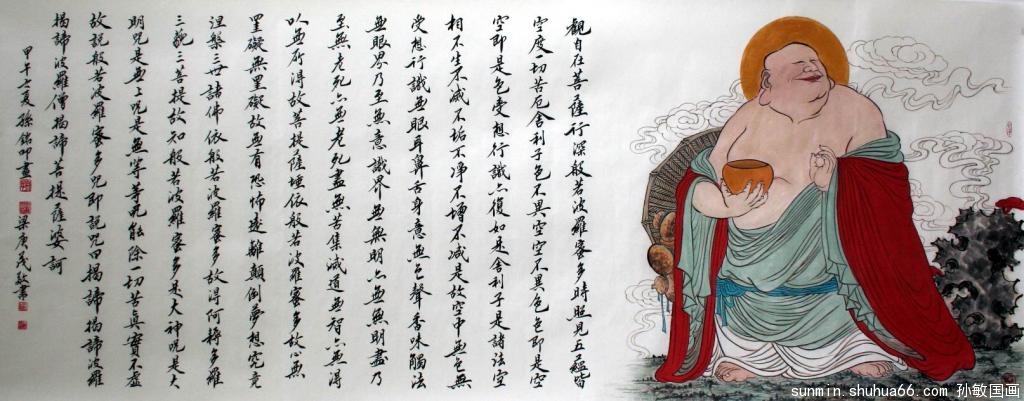 觀自在菩薩行深般若波羅蜜多時照見五蘊皆
空度一切苦厄舍利子色不異空空不異色色即是空
空即是色受想行識亦復如是舍利子是諸法空
相不生不滅不垢不淨不增不減是故空中無色無
受想行識無眼耳鼻舌身意無色聲香味觸法
無眼界乃至無意識界無無明亦無無明盡乃
至無老死亦無老死盡無苦集滅道無智亦無得
以無所得故菩提薩埵依般若波羅蜜多故心無
罣礙無罣礙故無有恐怖遠離顛倒夢想究竟
涅槃三世諸佛依般若波羅蜜多故得阿耨多羅
三藐三菩提故知般若波羅蜜多是大神咒是大
明咒是無上咒是無等等咒能除一切苦真實不虛
故說般若波羅蜜多咒即說咒曰揭諦揭諦波羅
揭諦波羅僧揭諦菩提薩婆訶
甲午之夏孫錦畫 梁庚茂敬書
sunmin.shuhua66.com 孙敏国画